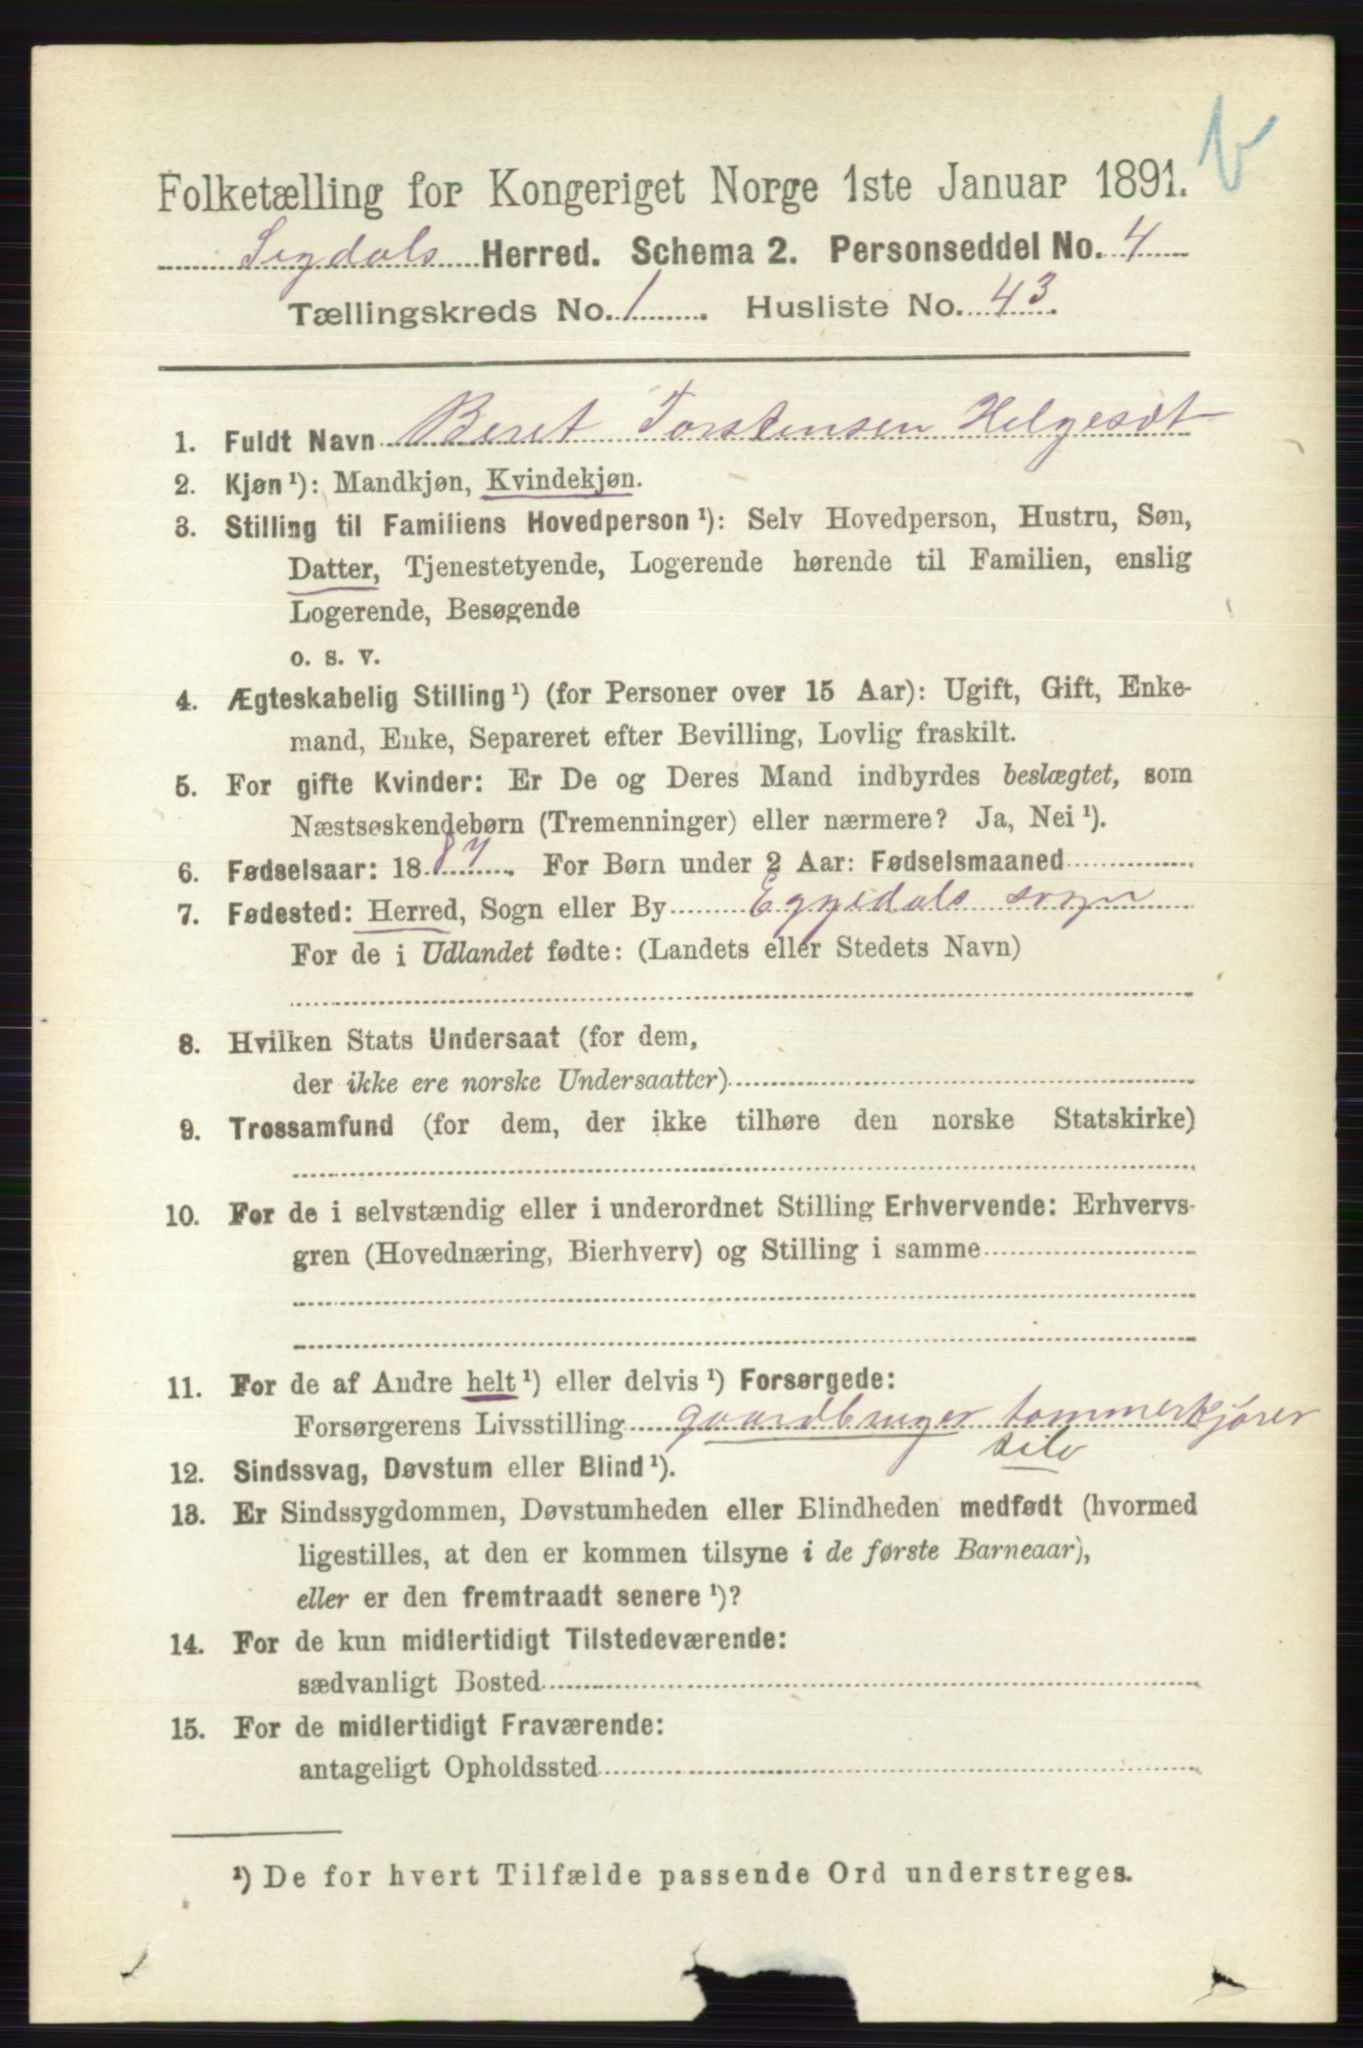 Folketælling for Kongeriget Norge 1ste Januar 1891.
Sigdals Herred. Schema 2. Personseddel No. 4
Tællingskreds No. 1. Husliste No. 43.
1. Fuldt Navn Beret Torstensen Helgesæt
2. Kjøn ¹): Mandkjøn, Kvindekjøn.
3. Stilling til Familiens Hovedperson ¹): Selv Hovedperson, Hustru, Søn,
Datter, Tjenestetyende, Logerende hørende til Familien, enslig
Logerende, Besøgende
o. s. v.
4. Ægteskabelig Stilling ¹) (for Personer over 15 Aar): Ugift, Gift, Enke-
mand, Enke, Separeret efter Bevilling, Lovlig fraskilt.
5. For gifte Kvinder: Er De og Deres Mand indbyrdes beslægtet, som
Næstsøskendebørn (Tremenninger) eller nærmere? Ja, Nei ¹).
6. Fødselsaar: 1887. For Børn under 2 Aar: Fødselsmaaned
7. Fødested: Herred, Sogn eller By Eggedals sogn
For de i Udlandet fødte: (Landets eller Stedets Navn)
8. Hvilken Stats Undersaat (for dem,
der ikke ere norske Undersaatter)
9. Trossamfund (for dem, der ikke tilhøre den norske Statskirke)
10. For de i selvstændig eller i underordnet Stilling Erhvervende: Erhvervs-
gren (Hovednæring, Bierhverv) og Stilling i samme
11. For de af Andre helt ¹) eller delvis ¹) Forsørgede:
Forsørgerens Livsstilling gaardbruger tømmerkjører
selv
12. Sindssvag, Døvstum eller Blind ¹).
13. Er Sindssygdommen, Døvstumheden eller Blindheden medfødt (hvormed
ligestilles, at den er kommen tilsyne i de første Barneaar),
eller er den fremtraadt senere ¹)?
14. For de kun midlertidigt Tilstedeværende:
sædvanligt Bosted
15. For de midlertidigt Fraværende:
antageligt Opholdssted
¹) De for hvert Tilfælde passende Ord understreges.